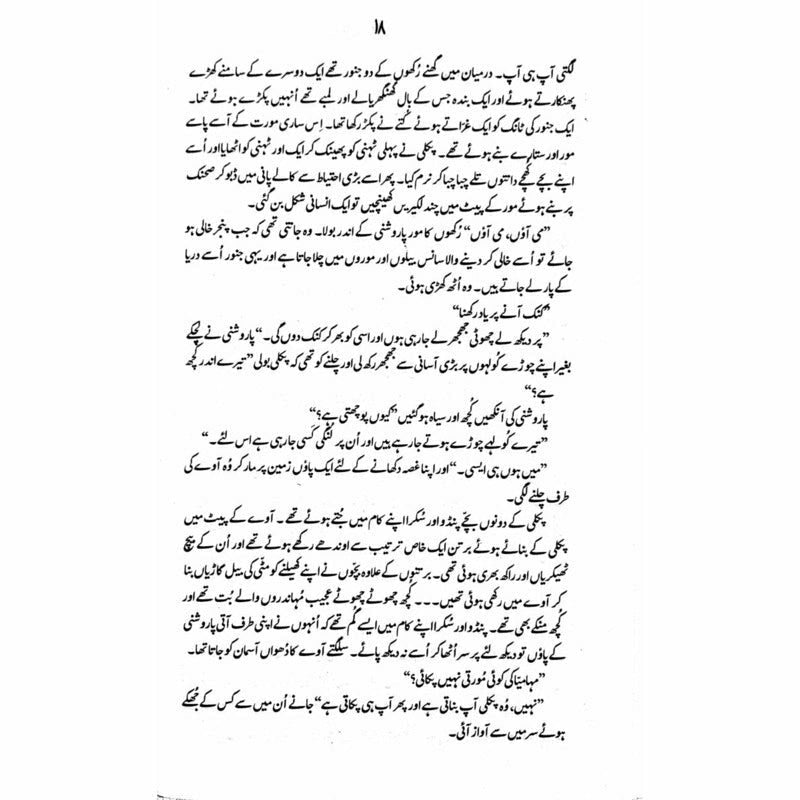 ۱۸
لگتی آپ ہی آپ۔ درمیان میں گھنے رُکھوں کے دو جنور تھے ایک دوسرے کے سامنے کھڑے
پھنکارتے ہوئے اور ایک بندہ جس کے بال گھنگھریالے اور لمبے تھے اُنہیں پکڑے ہوئے تھا۔
ایک جنور کی ٹانگ کو ایک غراتے ہوئے کُتے نے پکڑ رکھا تھا۔ اِس ساری مورت کے آسے پاسے
مور اور ستارے بنے ہوئے تھے۔ پکلی نے پہلی ٹہنی کو پھینک کر ایک اور ٹہنی کو اٹھایا اور اُسے
اپنے بچے کھچے دانتوں تلے چبا چبا کر نرم کیا۔ پھر اسے بڑی احتیاط سے کالے پانی میں ڈبو کر صحنک
پر بنے ہوئے مور کے پیٹ میں چند لکیریں کھینچیں تو ایک انسانی شکل بن گئی۔
”می آؤں، می آؤں“ رُکھوں کا مور پاروشنی کے اندر بولا۔ وہ جانتی تھی کہ جب پنجر خالی ہو
جائے تو اُسے خالی کر دینے والا سانس بیلوں اور موروں میں چلا جاتا ہے اور یہی جنور اُسے دریا
کے پار لے جاتے ہیں۔ وہ اُٹھ کھڑی ہوئی۔
”کنک آنے پر یاد رکھنا“
”پر دیکھ لے چھوٹی جھجھر لے جا رہی ہوں اور اسی کو بھر کر کنک دوں گی۔“ پاروشنی نے لچکے
بغیر اپنے چوڑے کُولہوں پر بڑی آسانی سے جھجھر رکھ لی اور چلنے کو تھی کہ پکلی بولی ”تیرے اندر کُچھ
ہے؟“
پاروشنی کی آنکھیں کُچھ اور سیاہ ہو گئیں ”کیوں پوچھتی ہے؟“
”تیرے کُولہے چوڑے ہوتے جا رہے ہیں اور اُن پر لُنگی کَسی جا رہی ہے اس لئے۔“
”میں ہوں ہی ایسی۔“ اور اپنا غصہ دکھانے کے لئے ایک پاؤں زمین پر مار کر وُہ آوے کی
طرف چلنے لگی۔
پکلی کے دونوں بچّے پنڈو اور سُکرا اپنے کام میں جُتے ہوئے تھے۔ آوے کے پیٹ میں
پکلی کے بنائے ہوئے برتن ایک خاص ترتیب سے اوندھے رکھے ہوئے تھے اور اُن کے بیچ
ٹھیکریاں اور راکھ بھری ہوئی تھی۔ برتنوں کے علاوہ بچّوں نے اپنے کھیلنے کو مٹّی کی بیل گاڑیاں بنا
کر آوے میں رکھی ہوئی تھیں۔۔۔ کُچھ چھوٹے چھوٹے عجیب مُہاندروں والے بُت تھے اور
کُچھ منکے بھی تھے۔ پنڈو اور سُکرا اپنے کام میں ایسے گُم تھے کہ اُنہوں نے اپنی طرف آتی پاروشنی
کے پاؤں تو دیکھ لئے پر سر اُٹھا کر اُسے نہ دیکھ پائے۔ سلگتے آوے کا دُھواں آسمان کو جاتا تھا۔
”مہامیّا کی کوئی مُورتی نہیں پکائی؟“
”نہیں، وُہ پکلی آپ بناتی ہے اور پھر آپ ہی پکاتی ہے“ جانے اُن میں سے کس کے جُھکے
ہوئے سر میں سے آواز آئی۔